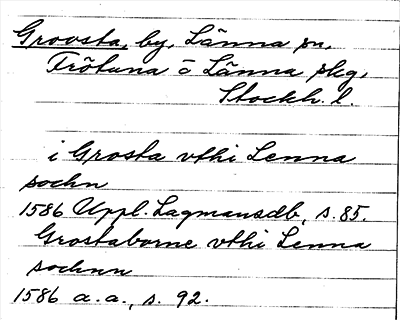 Grovsta, by, Länna sn,
Frötuna o Länna skg,
Stockh. l.
i Grosta vthi Lenna
sochn
1586 Uppl. Lagmansdb, s. 85.
Grostaborne vthi Lenna
sochnn
1586 a. a., s. 92.